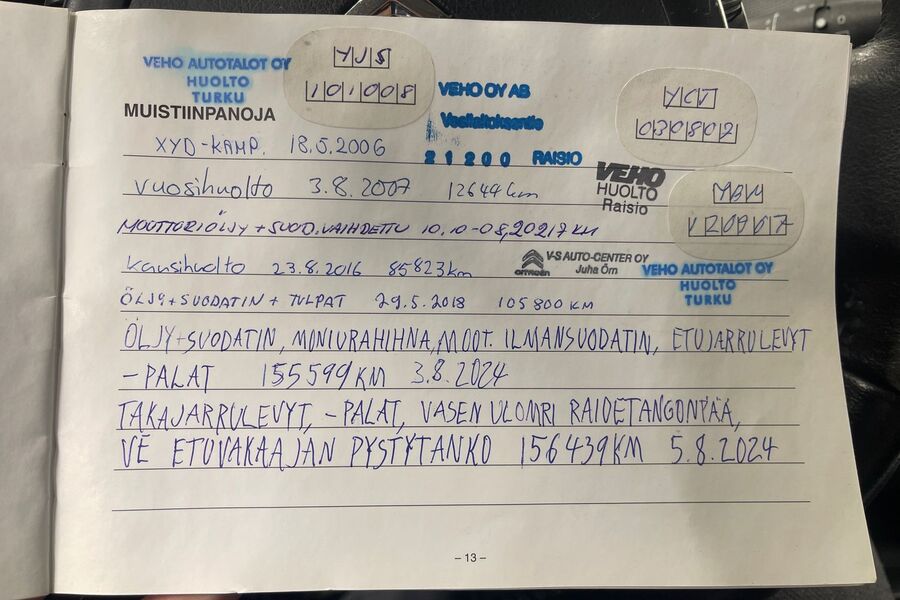 VEHO AUTOTALOT OY
HUOLTO
TURKU
YJS
101008
VEHO OY AB
Vesilaitoksentie
21200 RAISIO
YCT
030802
MUISTIINPANOJA
XYD-KAMP. 18.5.2006
VEHO
HUOLTO
Raisio
vuosihuolto 3.8.2007 12644km
MOOTTORIÖLJY + SUOD. VAIHDETTU 10.10-08, 20217 KM
kausihuolto 23.8.2016 85823km
CITROËN
V-S AUTO-CENTER OY
Juha Örn
VEHO AUTOTALOT OY
HUOLTO
TURKU
ÖLJY+SUODATIN + TULPAT 29.5.2018 105800 KM
ÖLJY+SUODATIN, MONIURAHIHNA, MOOT. ILMANSUODATIN, ETUJARRULEVYT
-PALAT 155599KM 3.8.2024
TAKAJARRULEVYT, -PALAT, VASEN ULOMPI RAIDETANGONPÄÄ,
VE ETUVAKAAJAN PYSTYTANKO 156439KM 5.8.2024
-13-